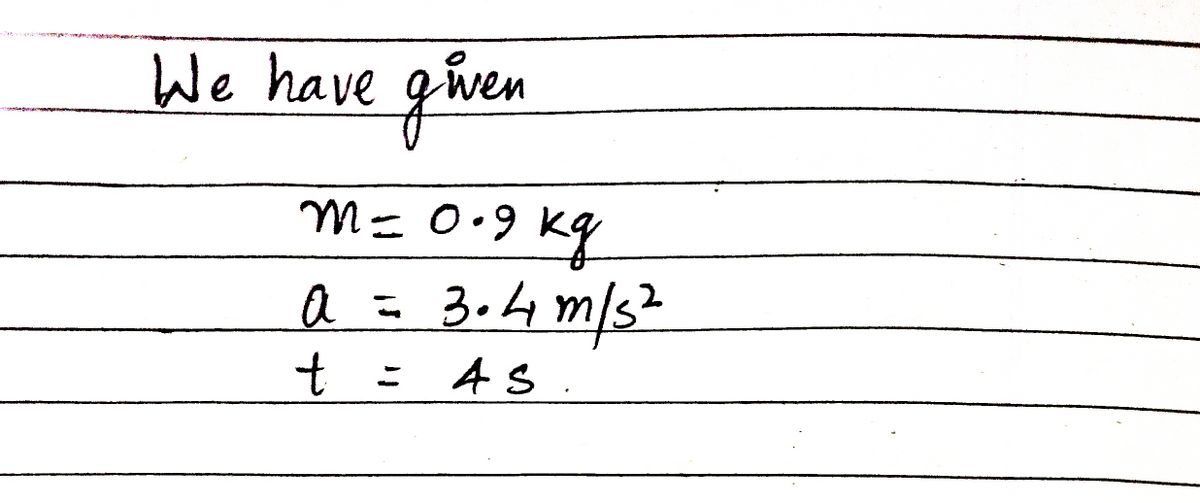 We have given
m = 0.9 kg
a = 3.4 m/s²
t = 4 s.